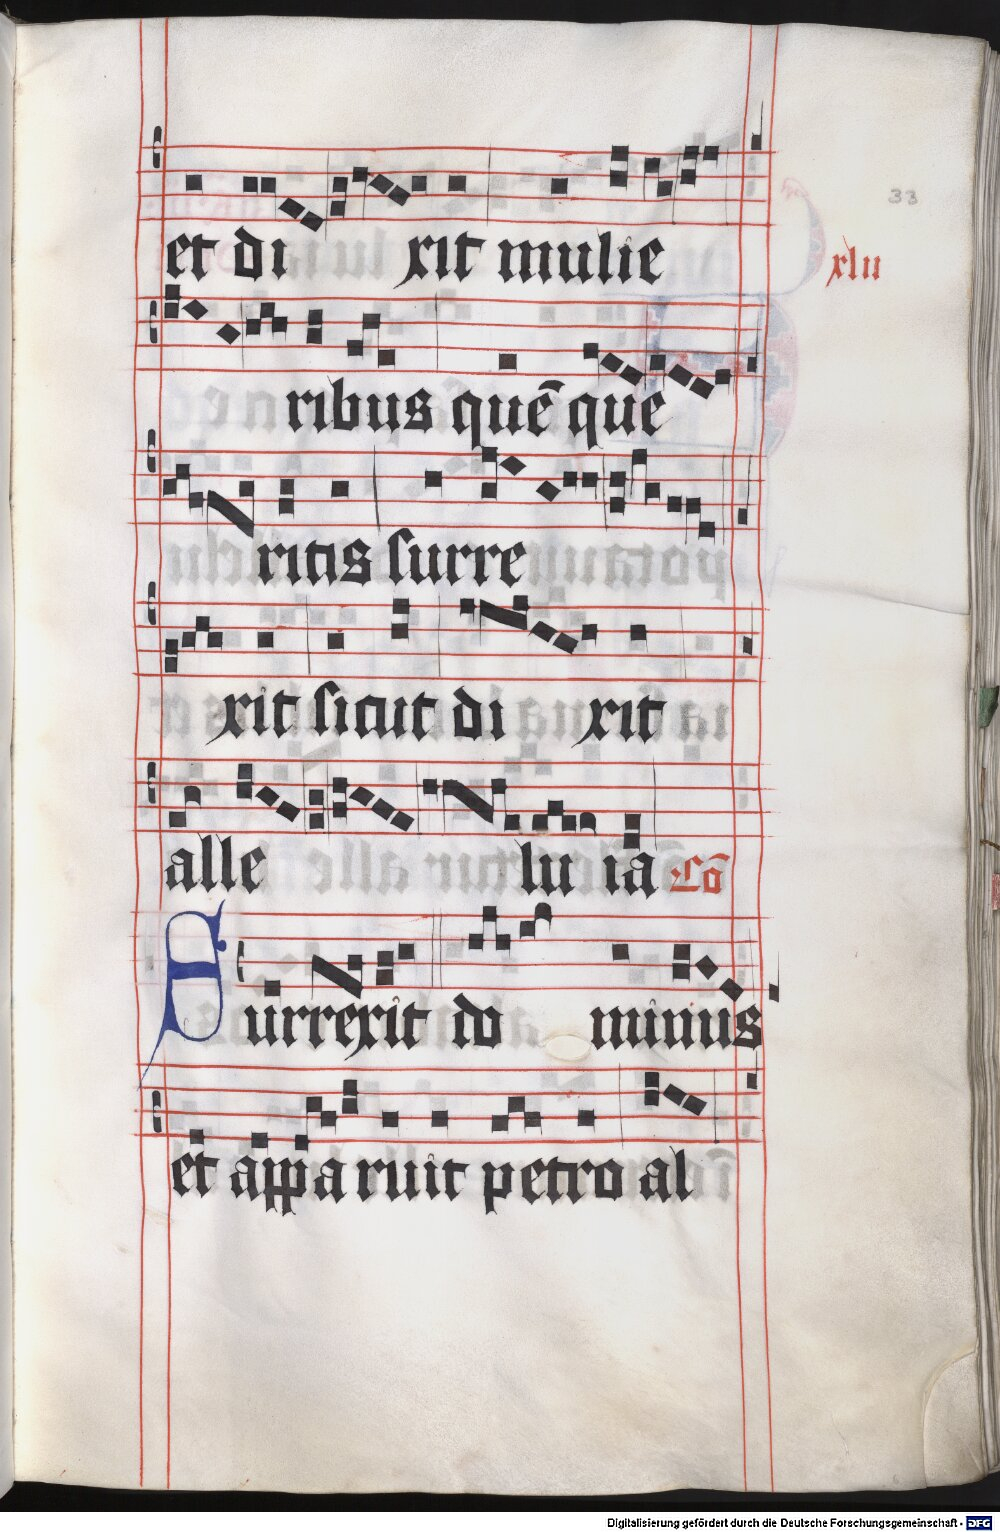 33
et di xit mulie
xlii
ribus quē que
ritis surre
xit sicut di xit
alle lu ia Cō
Surrexit do minus
et appa ruit petro al
Digitalisierung gefördert durch die Deutsche Forschungsgemeinschaft - DFG